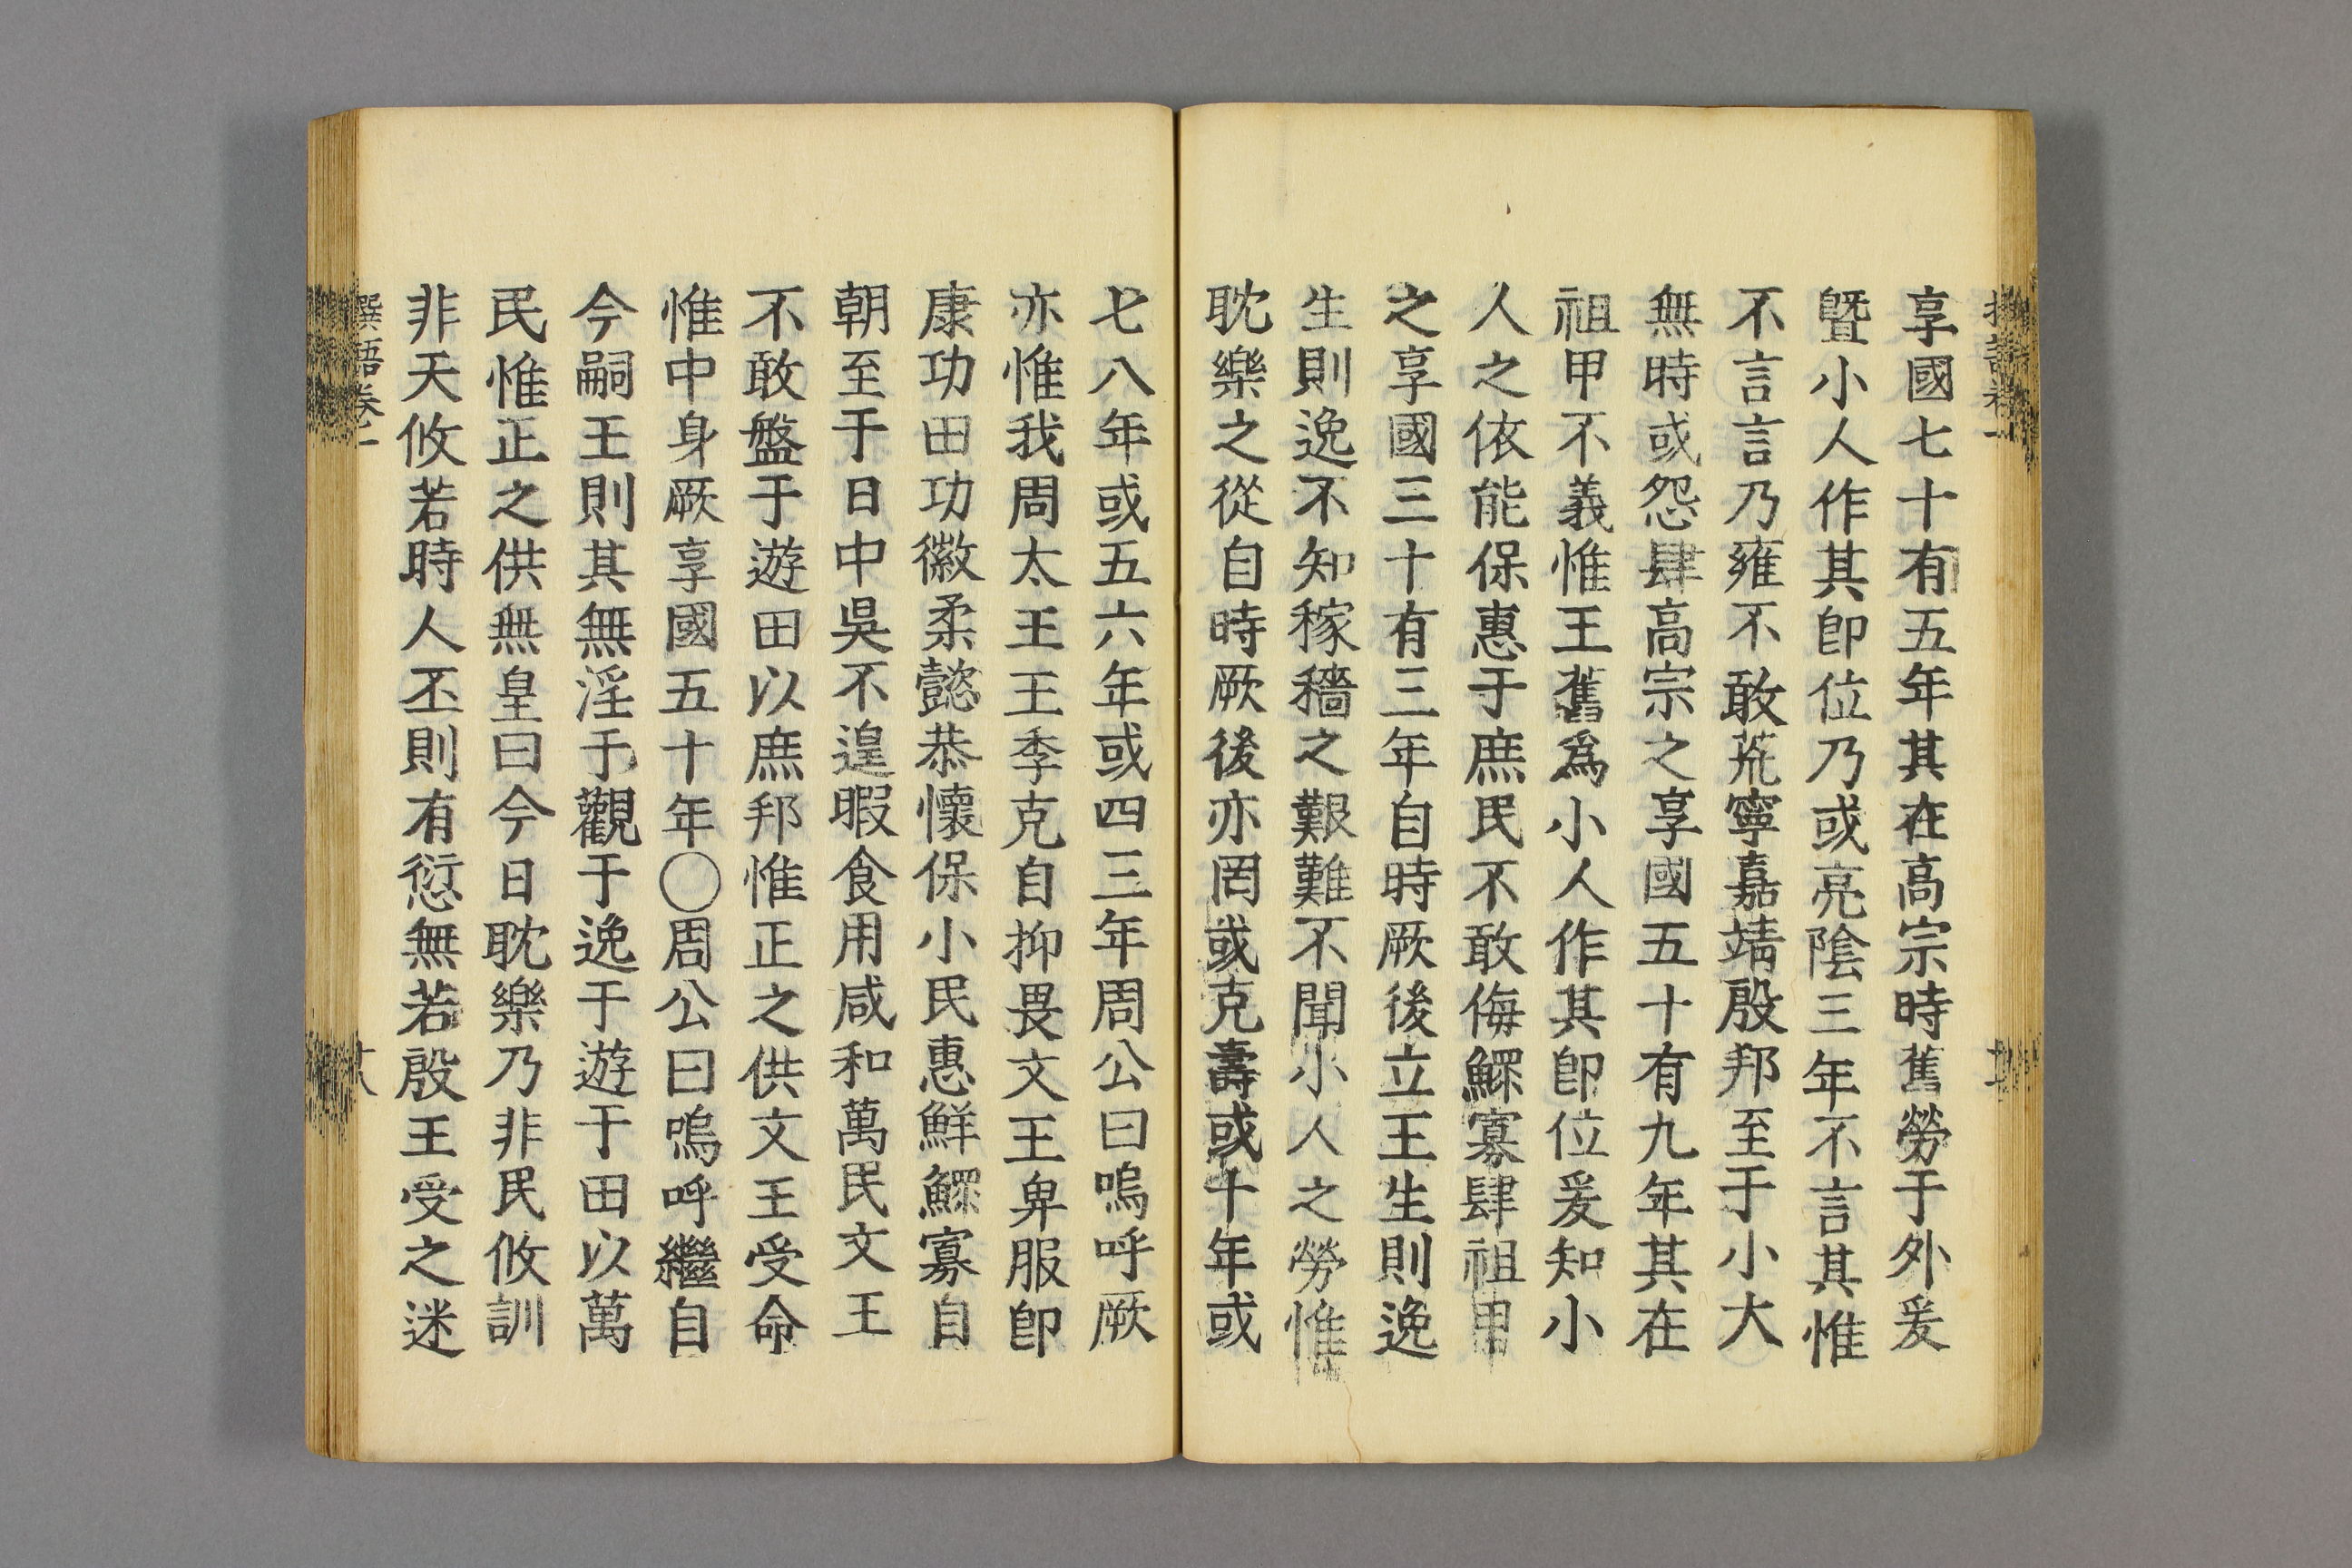 享國七十有五年其在高宗時舊勞于外爰
曁小人作其卽位乃或亮陰三年不言其惟
不言言乃雍不敢荒寧嘉靖殷邦至于小大
無時或怨肆高宗之享國五十有九年其在
祖甲不義惟王舊爲小人作其卽位爰知小
人之依能保惠于庶民不敢侮鰥寡肆祖甲
之享國三十有三年自時厥後立王生則逸
生則逸不知稼穡之艱難不聞小人之勞惟
耽樂之從自時厥後亦罔或克壽或十年或
七八年或五六年或四三年周公曰嗚呼厥
亦惟我周太王王季克自抑畏文王卑服卽
康功田功徽柔懿恭懷保小民惠鮮鰥寡自
朝至于日中吳不遑暇食用咸和萬民文王
不敢盤于遊田以庶邦惟正之供文王受命
惟中身厥享國五十年〇周公曰嗚呼繼自
今嗣王則其無淫于觀于逸于遊于田以萬
民惟正之供無皇曰今日耽樂乃非民攸訓
非天攸若時人丕則有愆無若殷王受之迷
撰語卷一
十八